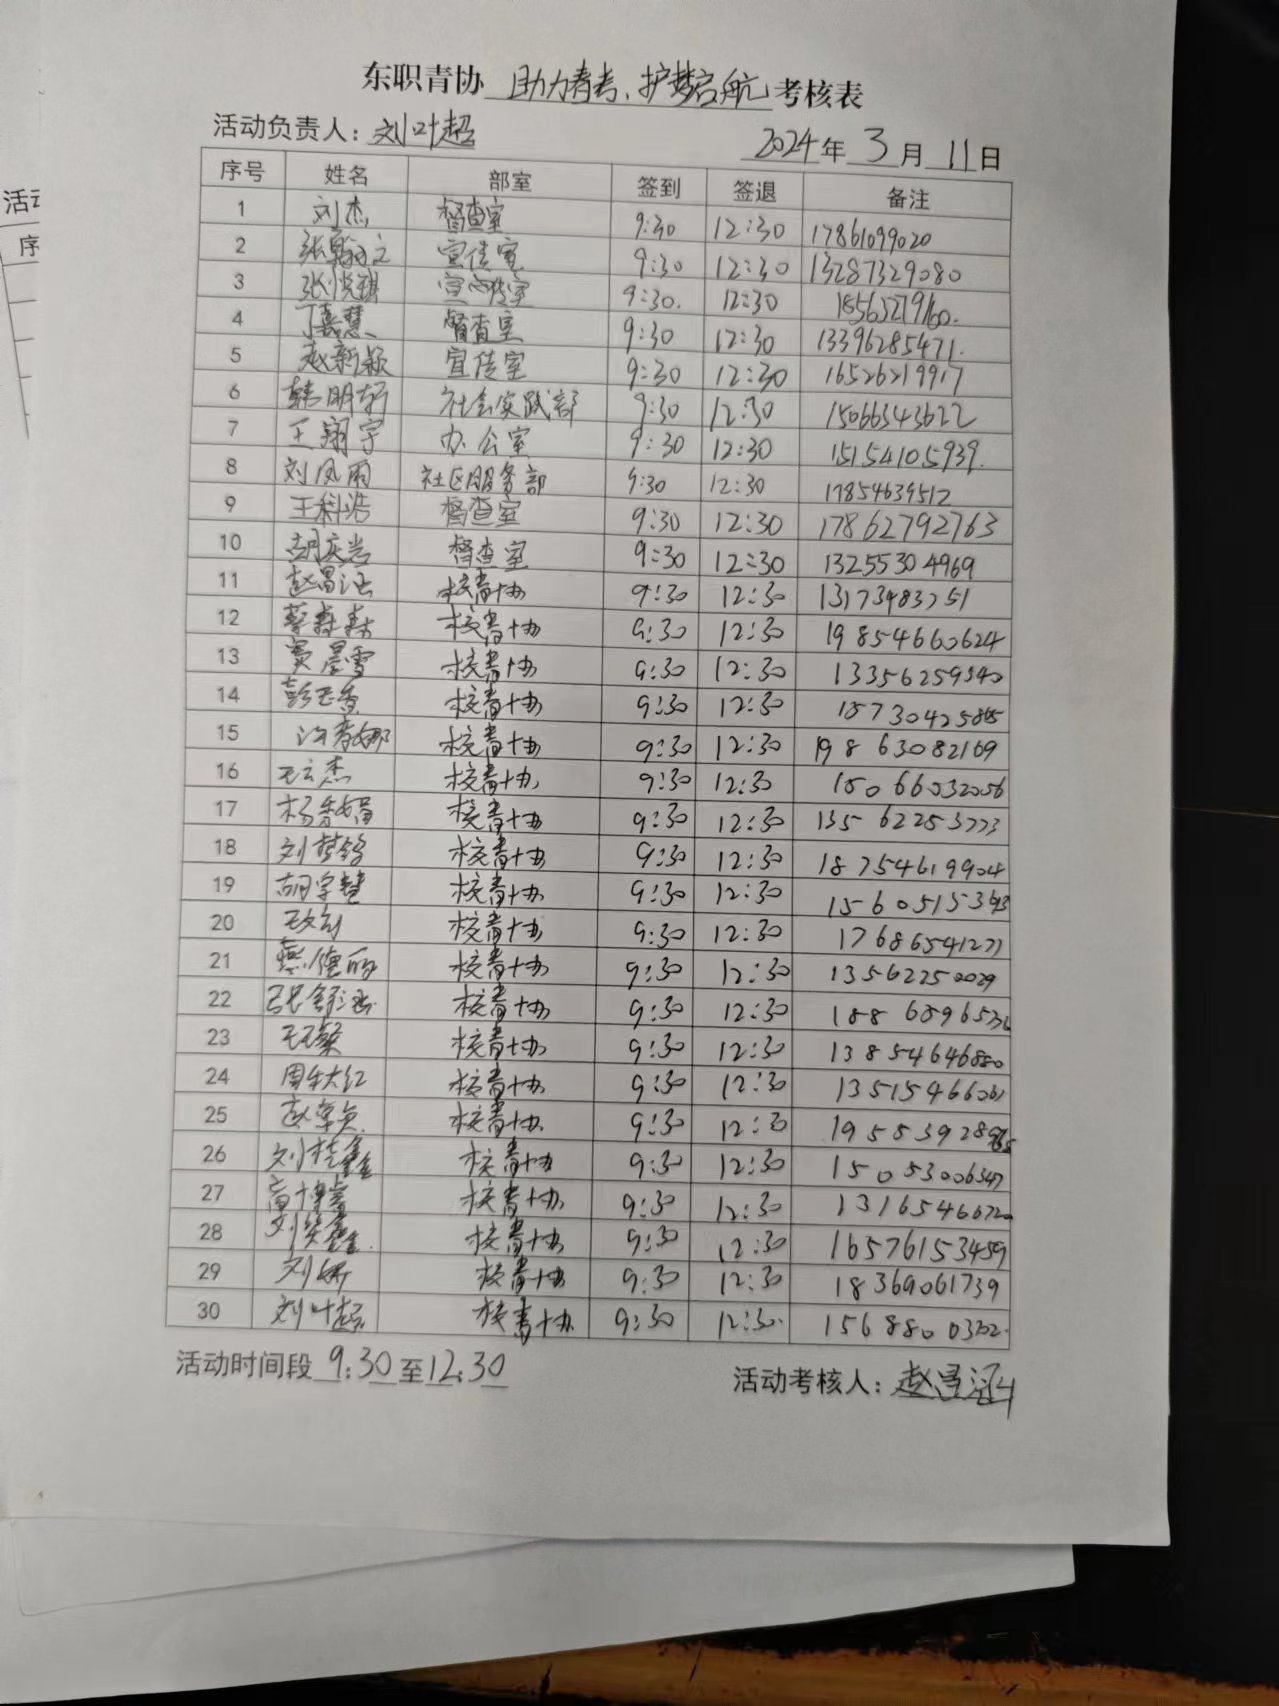 活动
序
东职青协 助力春考、护梦启航 考核表
活动负责人：刘叶超 2024年 3月 11日
序号 姓名 部室 签到 签退 备注
1 刘杰 督查室 9:30 12:30 17861099020
2 张翰文 宣传室 9:30 12:30 13287329080
3 张悦琪 宣传室 9:30. 12:30
4 丁慧慧 督查室 9:30 12:30 13396285471.
5 赵新颖 宣传室 9:30 12:30 16526219917
6 韩明轩 社会实践部 9:30 12:30 15066343622
7 王翔宇 办公室 9:30 12:30 15154105939.
8 刘凤雨 社区服务部 9:30 12:30 17854639512
9 王科浩 督查室 9:30 12:30 17862792763
10 胡庆岩 督查室 9:30 12:30 13255304969
11 赵昌涵 校青协 9:30 12:30 13173483251
12 校青协 9:30 12:30 19854660624
13 窦晨雪 校青协 9:30 12:30 13356259340
14 彭玉香 校青协 9:30 12:30
15 校青协 9:30 12:30 19863082169
16 王云杰 校青协 9:30 12:30 15066032056
17 校青协 9:30 12:30 13562253773
18 刘梦锦 校青协 9:30 12:30 18754619904
19 胡字慧 校青协 9:30 12:30
20 校青协 9:30 12:30 17686541271
21 校青协 9:30 12:30 13562250029
22 校青协 9:30 12:30
23 校青协 9:30 12:30 13854646880
24 校青协 9:30 12:30 13515466061
25 校青协 9:30 12:30
26 刘桂鑫 校青协 9:30 12:30 15053006347
27 高博睿 校青协 9:30 12:30
28 校青协 9:30 12:30 16576153459
29 刘娇 校青协 9:30 12:30 18369061739
30 刘叶超 校青协 9:30 12:30. 15688003302.
活动时间段 9:30 至 12:30 活动考核人：赵昌涵